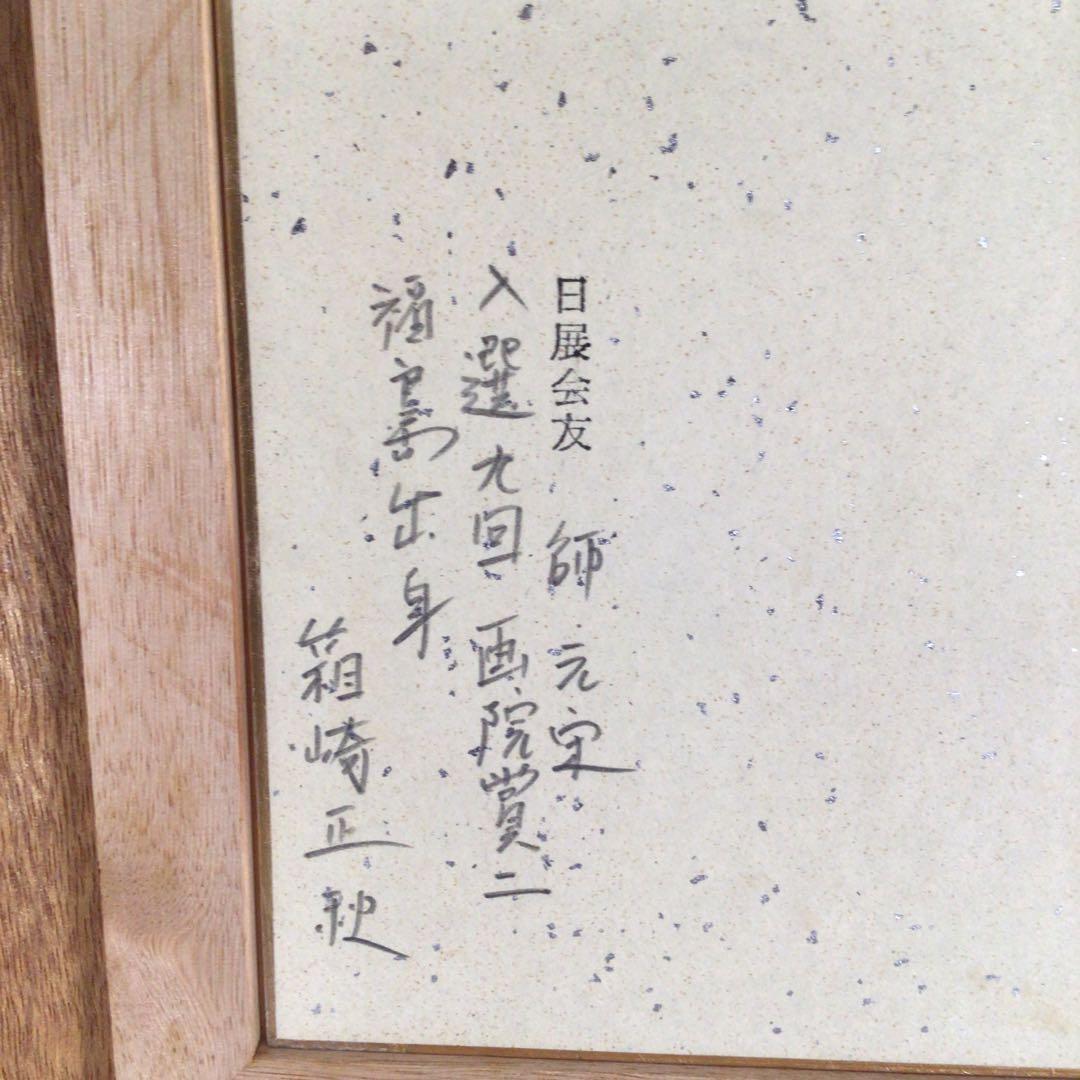 日展会友 師 元宋
入選九回 画院賞二
福島出身
箱崎正秋